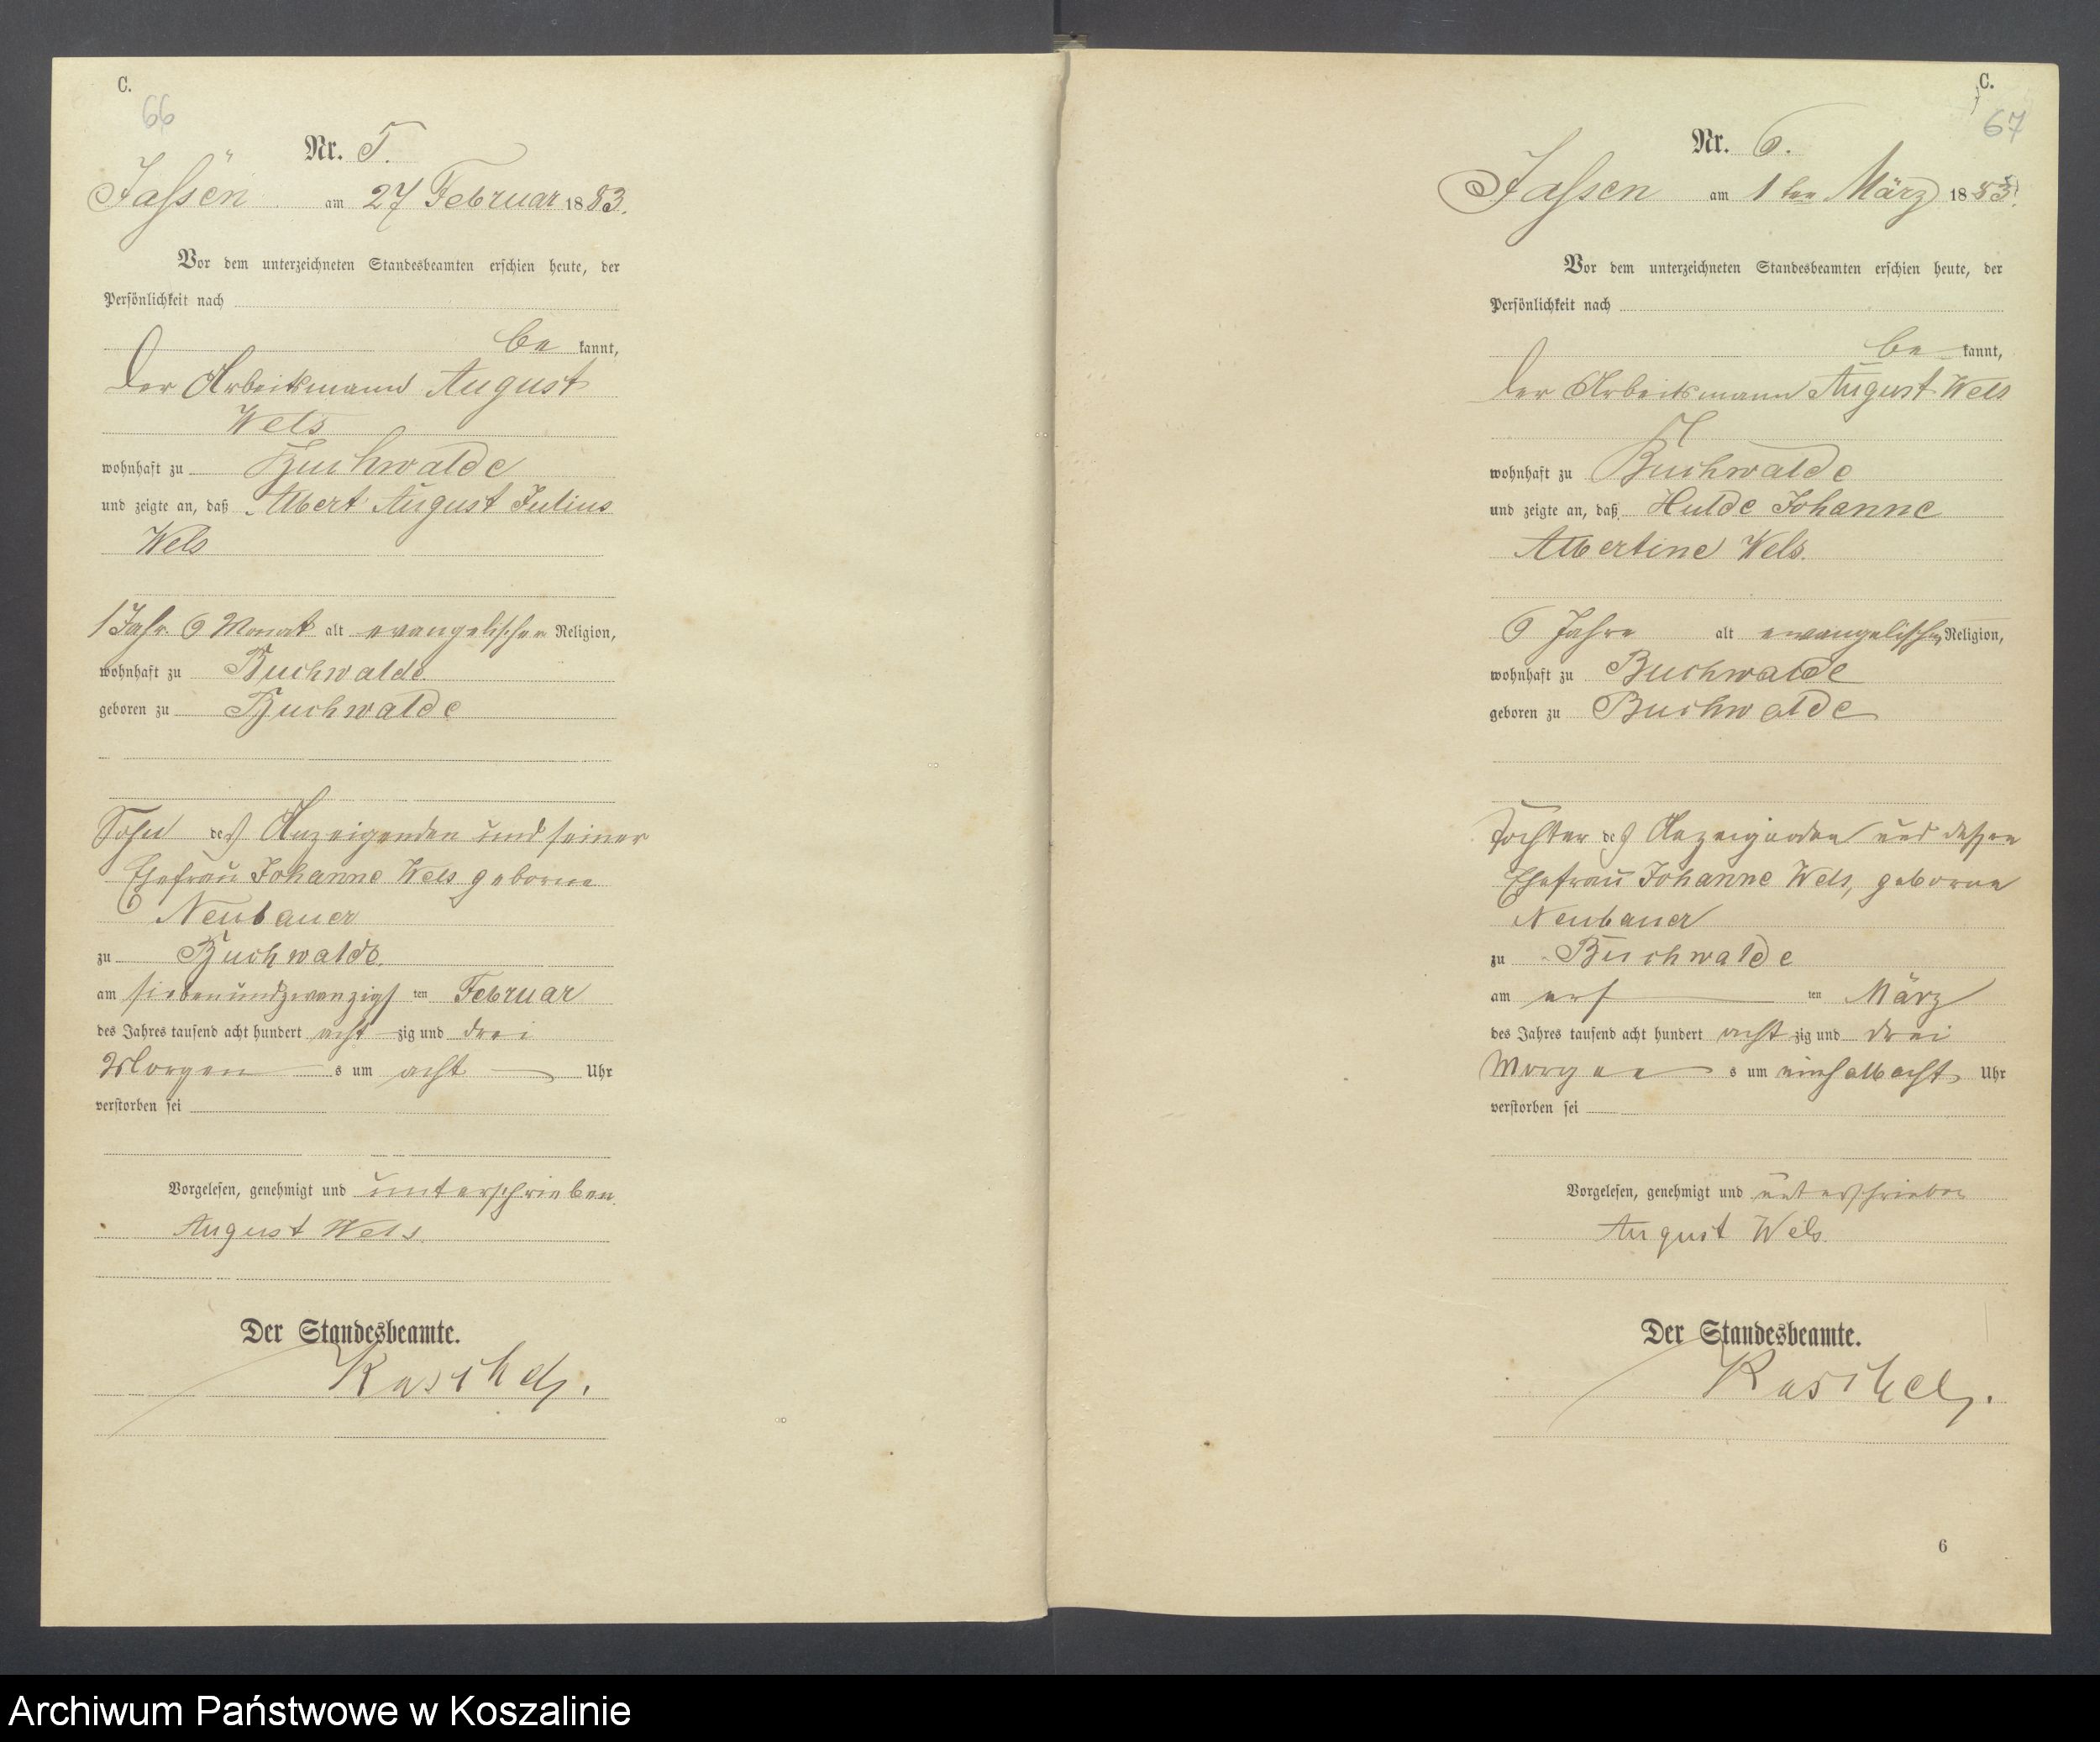 C.
66
Nr. 5.
Jassen am 27 Februar 1883.
Vor dem unterzeichneten Standesbeamten erschien heute, der
Persönlichkeit nach
be kannt,
der Arbeitsmann August
Wels
wohnhaft zu Buchwalde
und zeigte an, daß Albert August Julius
Wels
1 Jahr 6 Monat alt evangelischer Religion,
wohnhaft zu Buchwalde
geboren zu Buchwalde
Sohn des Anzeigenden und seiner
Ehefrau Johanne Wels geborne
Neubauer
zu Buchwalde.
am siebenundzwanzigs ten Februar
des Jahres tausend acht hundert acht zig und drei
Morgen s um acht Uhr
verstorben sei
Vorgelesen, genehmigt und unterschrieben
August Wels.
Der Standesbeamte.
C.
67
Nr. 6.
Jassen am 1ten März 1883.
Vor dem unterzeichneten Standesbeamten erschien heute, der
Persönlichkeit nach
be kannt,
der Arbeitsmann August Wels
wohnhaft zu Buchwalde
und zeigte an, daß Hulde Johanne
Albertine Wels.
6 Jahre alt evangelischer Religion,
wohnhaft zu Buchwalde
geboren zu Buchwalde
Tochter des Anzeigenden und dessen
Ehefrau Johanne Wels, geborne
Neubauer
zu Buchwalde
am ers ten März
des Jahres tausend acht hundert acht zig und drei
Morgen s um einhalb acht Uhr
verstorben sei
Vorgelesen, genehmigt und unterschrieben
August Wels.
Der Standesbeamte.
6
Archiwum Państwowe w Koszalinie